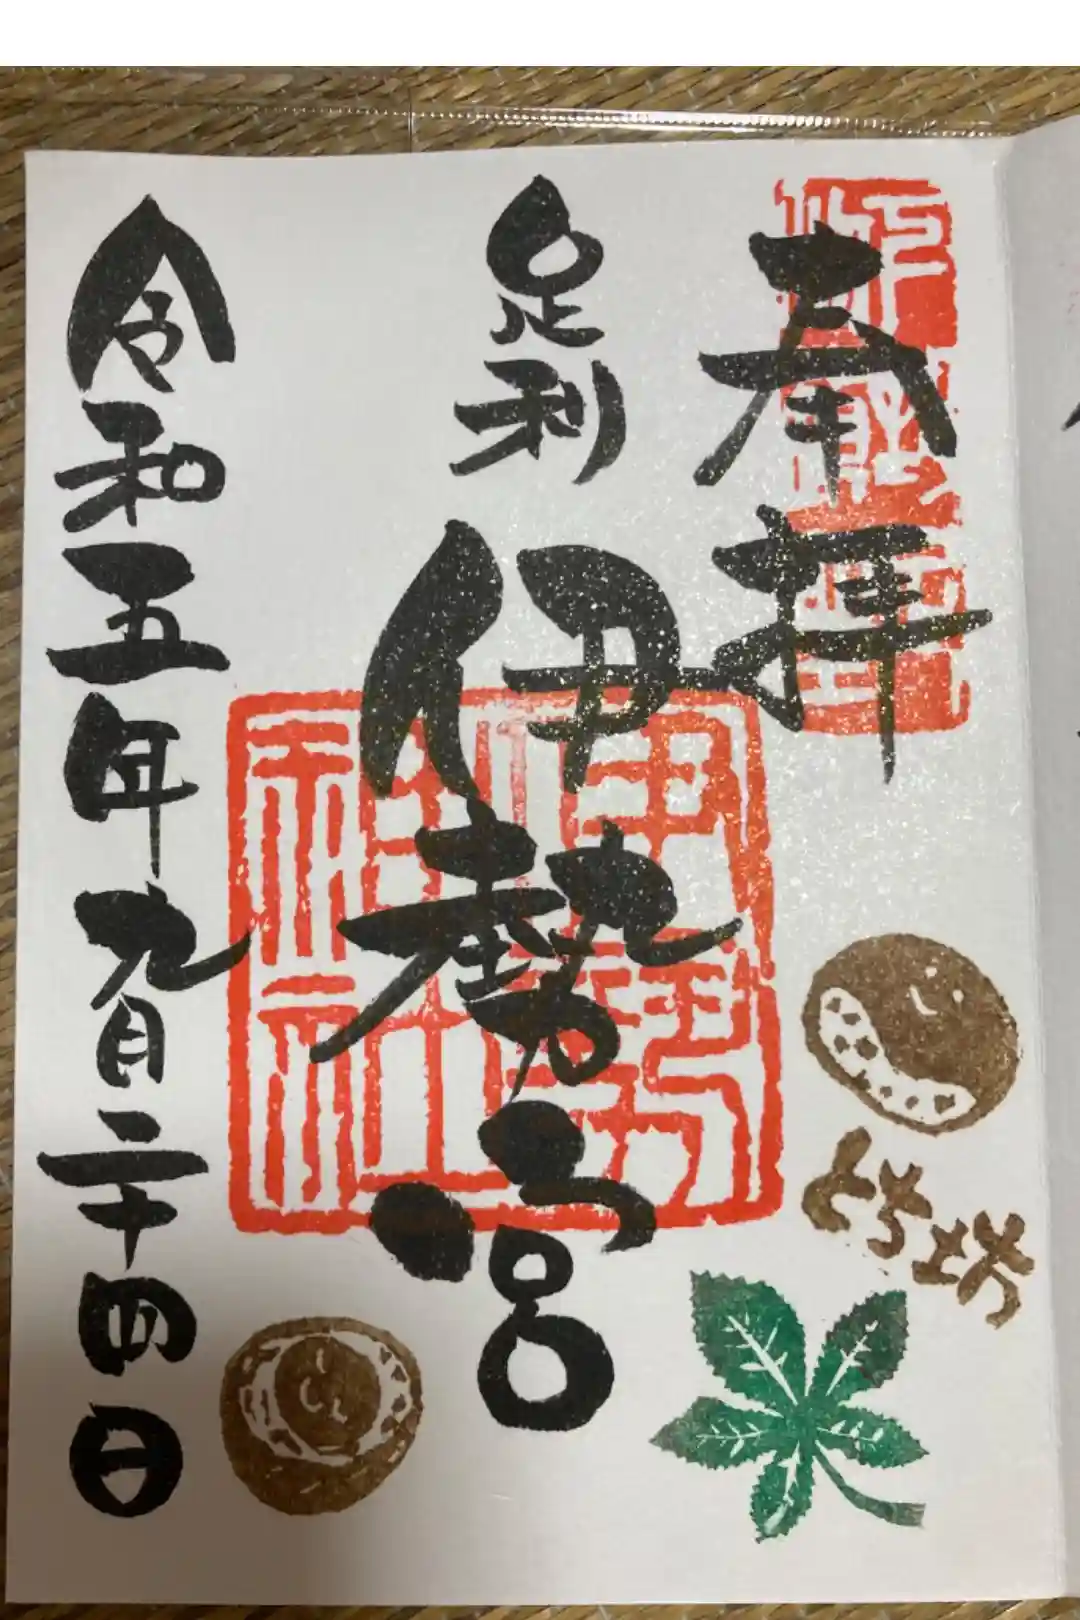 奉拝
足利
伊勢宮
伊勢
神社
とち坊
令和五年九月二十四日